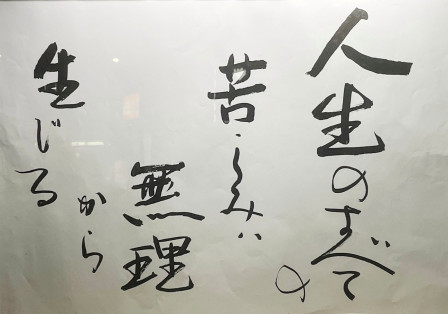 人生のすべての
苦しみは
無理
から
生じる